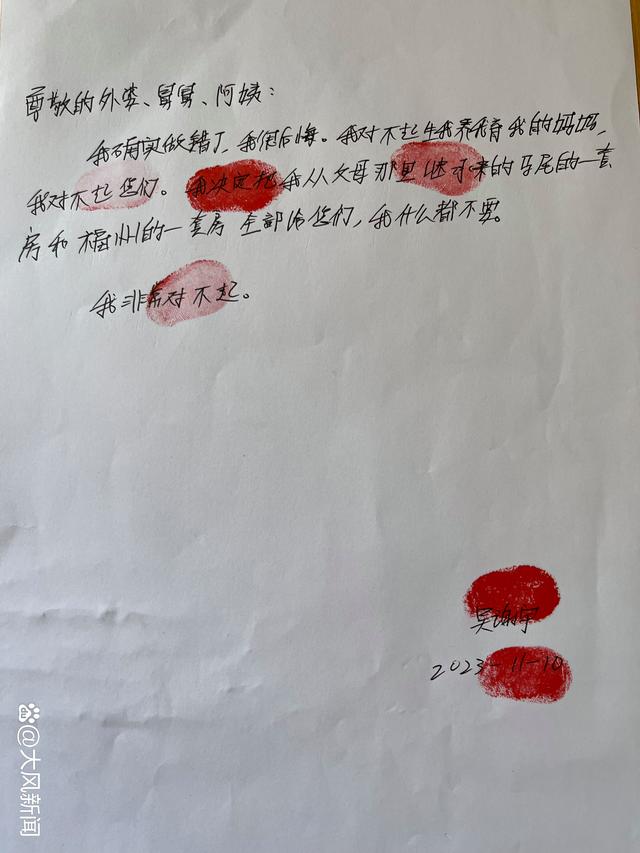 尊敬的外婆、舅舅、阿姨：
我确实做错了，我很后悔。我对不起生我养我育我的妈妈，
我对不起您们。我决定把我从父母那里继承来的马尾的一套
房和福州的一套房全部给您们，我什么都不要。
我非常对不起。
吴谢宇
2023-11-10
@大风新闻